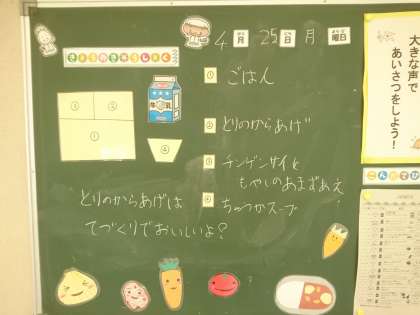 4月25日月曜日
きょうのきゅうしょく
① ごはん
② とりのからあげ
③ チンゲンサイと
もやしのあまずあえ
④ ちゅうかスープ
牛乳
③ ②
①
④
とりのからあげは
てづくりでおいしいよ?
大きな声で
あいさつをしよう!